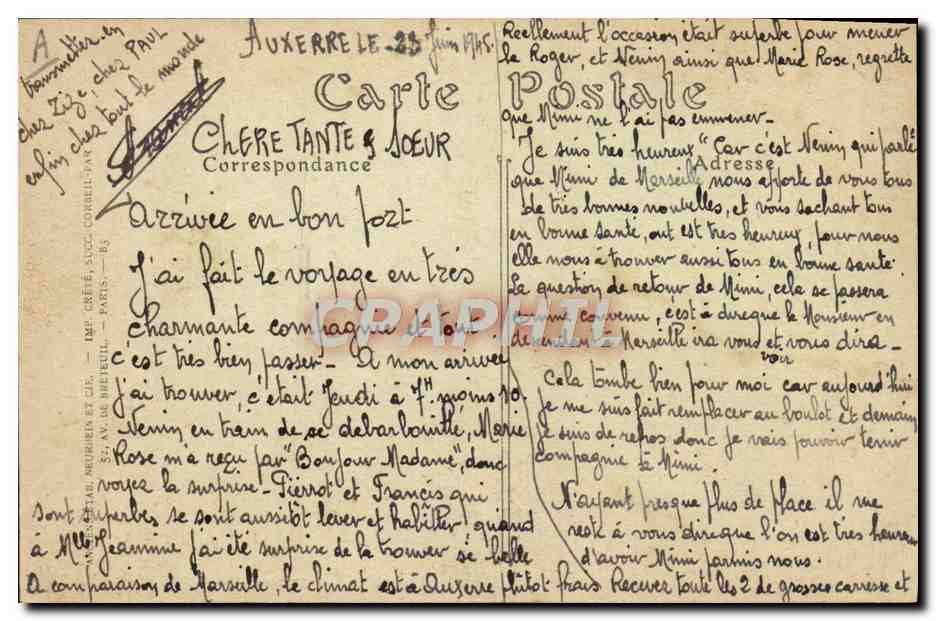 A
transmettre en
chez Zize, chez PAUL
enfin chez tout le monde
AUXERRE LE 23 Juin 1945.
Carte Postale
Correspondance
Adresse
CHERE TANTE & SOEUR
Arrivée en bon port
J'ai fait le voyage en très
charmante compagnie et tout
c'est très bien passer - A mon arrivée
j'ai trouver, c'était Jeudi à 7H moins 10.
Nenin en train de se debarbouillé, Marie
Rose m'a reçu par "Bonjour Madame", donc
voyez la surprise - Pierrot et Francis qui
sont superbes se sont aussitôt lever et habiller quand
à Mlle Jeannine j'ai été surprise de la trouver si belle
A comparaison de Marseille, le climat est à Auxerre plutôt frais Recevez toute les 2 de grosses caresse et
Réellement l'occasion était superbe pour mener
le Roger, et Nenin ainsi que Marie Rose, regrette
que Mimi ne l'ai pas emmener -
"Je suis très heureux" Car c'est Nenin qui parle
que Mimi de Marseille nous apporte de vous tous
de très bonnes nouvelles, et vous sachant tous
en bonne santé, ont est très heureux, pour nous
elle nous à trouver aussi tous en bonne santé
La question de retour de Mimi, cela se passera
comme convenu, c'est à dire que le Monsieur en
descendant à Marseille ira vous voir et vous dira -
Cela tombe bien pour moi car aujourd'hui
je me suis fait remplacer au boulot et demain
je suis de repos donc je vais pouvoir tenir
compagnie à Mimi.
N'ayant presque plus de place il me
reste à vous dire que l'on est très heureux
d'avoir Mimi parmis nous.
IMP. CRÉTÉ, SUCC. CORBEIL-PAR
ANCIENS ETAB. NEURDEIN ET CIE.
52, AV. DE BRETEUIL. - PARIS. - B5
CPAPHIL